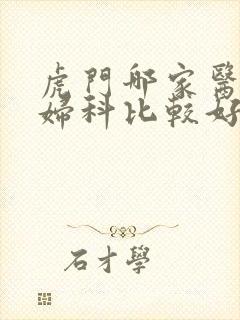 虎門那家醫
婦科比較好
石才學